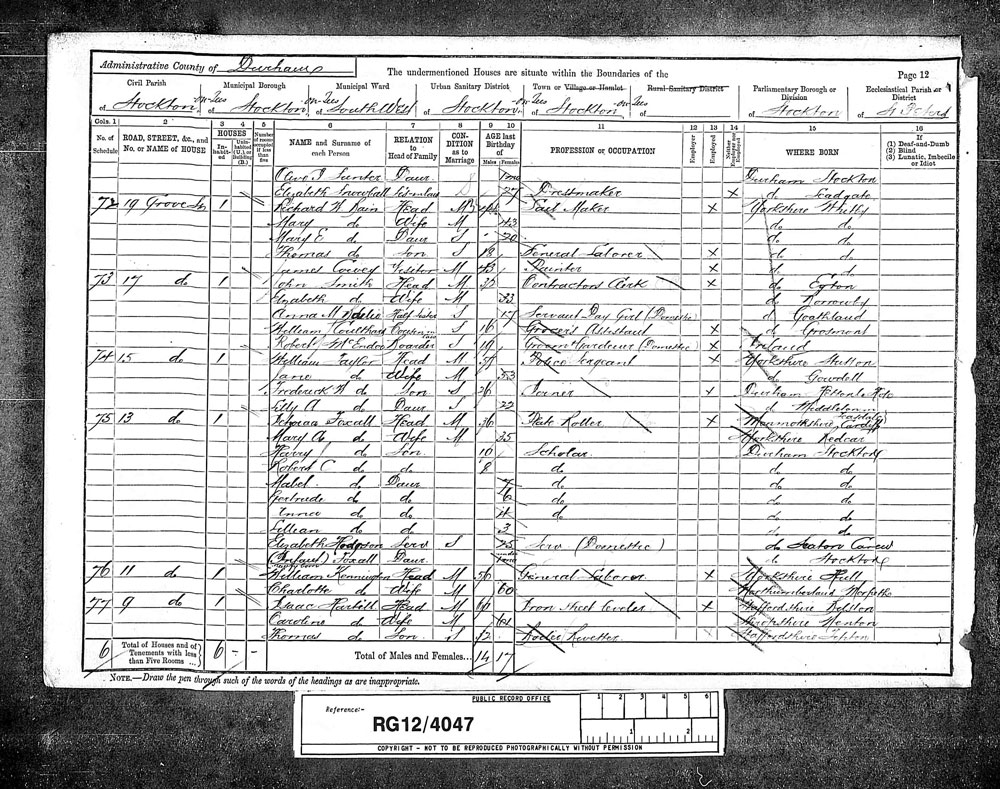 Administrative County of Durham
The undermentioned Houses are situate within the Boundaries of the
Page 12
Civil Parish of Stockton-on-Tees
Municipal Borough of Stockton-on-Tees
Municipal Ward of South West
Urban Sanitary District of Stockton-on-Tees
Town or Village or Hamlet of Stockton-on-Tees
Rural Sanitary District of
Parliamentary Borough or Division of Stockton
Ecclesiastical Parish or District of St
Cols. 1 2 3 4 5 6 7 8 9 10 11 12 13 14 15 16
No. of Schedule
ROAD, STREET, &c., and No. or NAME of HOUSE
HOUSES
Inhabited
Uninhabited (U.), or Building (B.)
Number of rooms occupied if less than five
NAME and Surname of each Person
RELATION to Head of Family
CONDITION as to Marriage
AGE last Birthday of
Males Females
PROFESSION or OCCUPATION
Employer
Employed
Neither Employer nor Employed
WHERE BORN
If (1) Deaf-and-Dumb (2) Blind (3) Lunatic, Imbecile or Idiot
Olive Hunter Daur Durham Stockton
Elizabeth 27 Dressmaker X do
72 19 Grove St 1 Richard W Bain Head M Sail Maker X Yorkshire Whitby
Mary do Wife M 43 do do
Mary E do Daur S 20 do do
Thomas do Son S 18 General Laborer X do do
James Visitor M 43 Painter X do do
73 17 do 1 John Smith Head M 32 Contractors Clerk X do Egton
Elizabeth do Wife M 33 do
Anna M Half Sister S 17 Servant Day Girl (Domestic) do Goathland
William Coulthard S 16 Grocers Assistant X do Grosmont
Robert Boarder S 19 Groom & Gardener (Domestic) X Ireland
74 15 do 1 William Taylor Head M Police Sergeant X Yorkshire Hutton
Jane do Wife M 53 do
Frederick W do Son S 26 Joiner X Durham
Lilly A do Daur S 22 do Middleton in
75 13 do 1 Foxall Head M 36 Plate Roller X Monmouthshire Cardiff
Mary A do Wife M 35 Yorkshire Redcar
Harry do Son 10 Scholar Durham Stockton
Robert C do do 8 do do do
Mabel do Daur 7 do do do
Gertrude do do 6 do do do
Anna do do 4 do do do
Lillian do do 3 do do
Elizabeth Hodgson Serv S 25 Serv (Domestic) do Seaton Carew
(Infant) Foxall Daur do Stockton
76 11 do 1 William Kennington Head M 56 General Laborer X Yorkshire Hull
Charlotte do Wife M 60 Northumberland Morpeth
77 9 do 1 Isaac Head M 60 Iron Sheet X Staffordshire Bilston
Caroline do Wife M 61
Thomas do Son S Staffordshire Tipton
6 Total of Houses and of Tenements with less than Five Rooms ... 6 - - Total of Males and Females... 14 17
NOTE.—Draw the pen through such of the words of the headings as are inappropriate.
PUBLIC RECORD OFFICE
Reference:-
RG12/4047
1 2 3 4 5 6
1 2
COPYRIGHT - NOT TO BE REPRODUCED PHOTOGRAPHICALLY WITHOUT PERMISSION